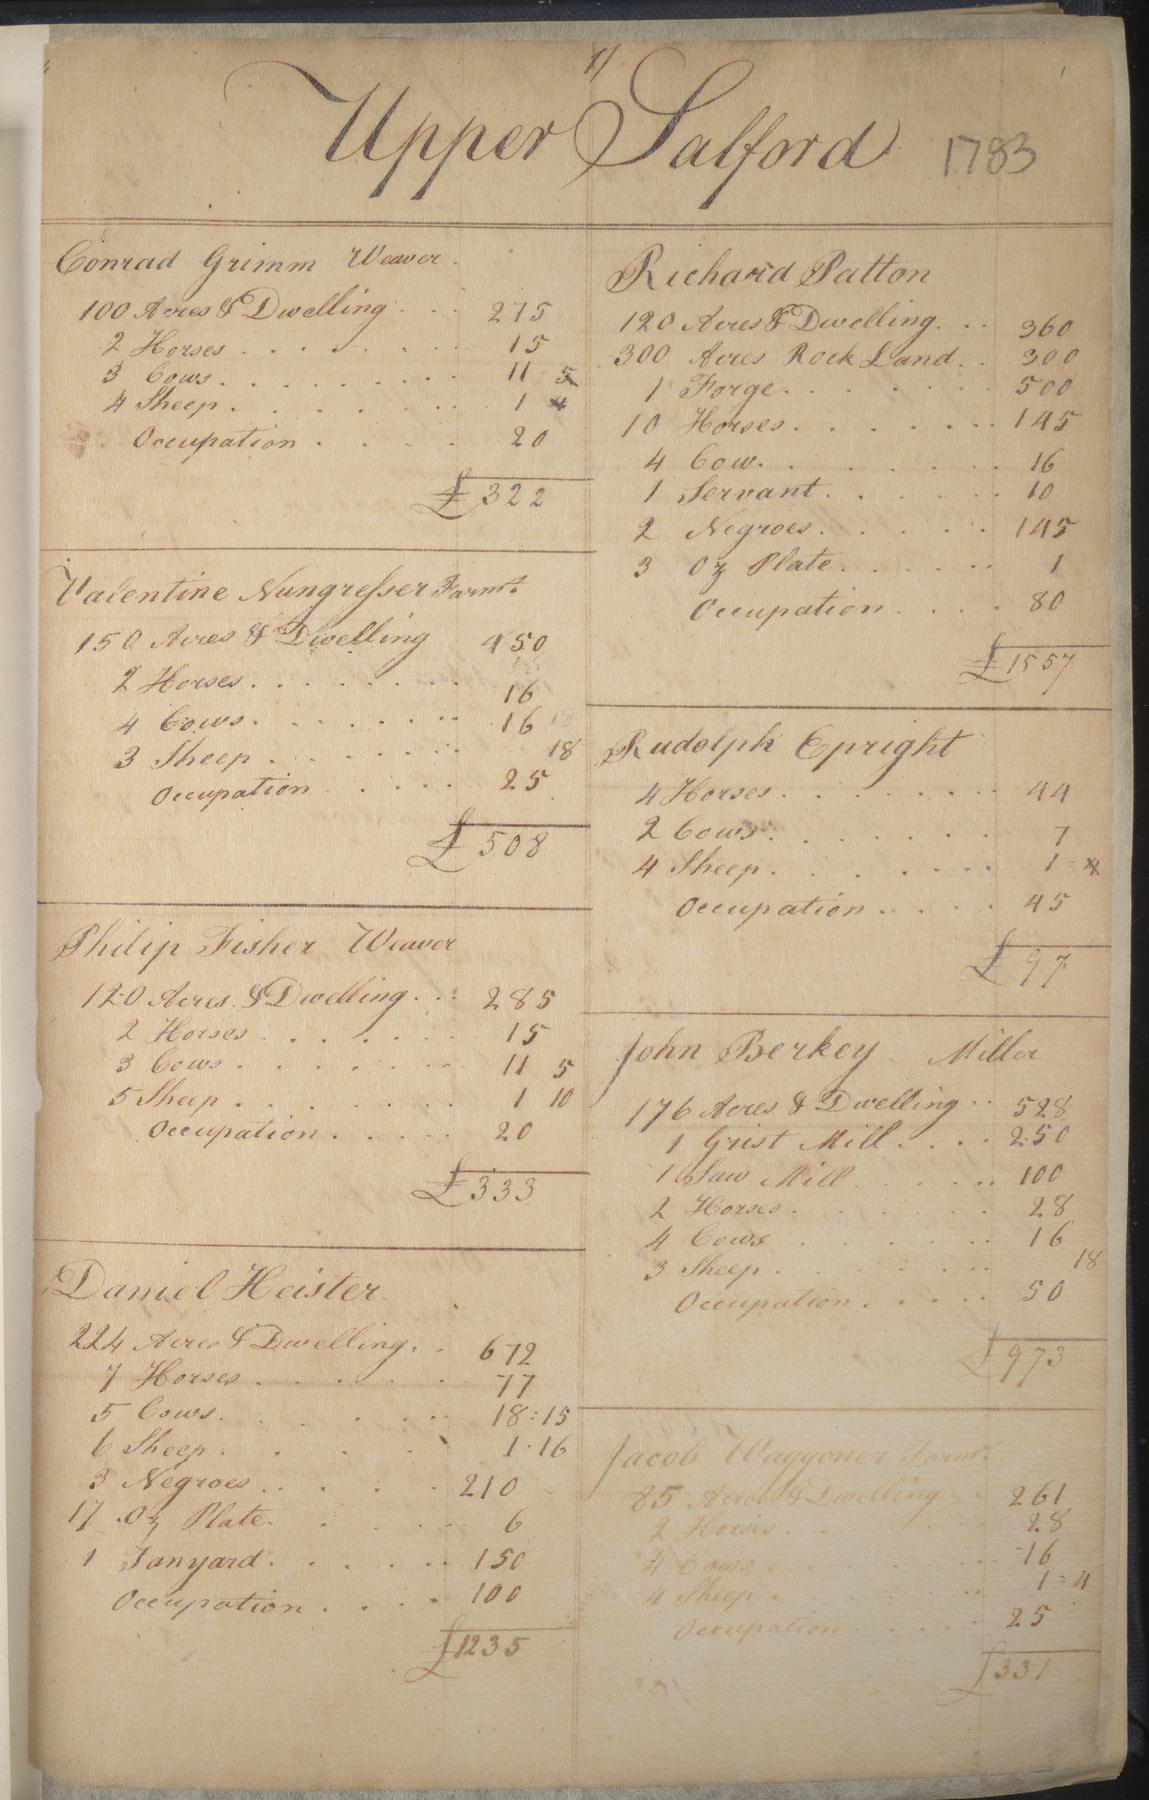 1/
Upper Salford 1783
Conrad Grimm Weaver
100 Acres & Dwelling 275
2 Horses 15
3 Cows 11 5
4 Sheep 1 4
Occupation 20
£ 322
Valentine Nungresser Farmr
150 Acres & Dwelling 450
2 Horses 16
4 Cows 16
3 Sheep 18
Occupation 25
£ 508
Philip Fisher Weaver
120 Acres & Dwelling 285
2 Horses 15
3 Cows 11 5
5 Sheep 1 10
Occupation 20
£ 333
Daniel Heister
224 Acres & Dwelling 672
7 Horses 77
5 Cows 18:15
6 Sheep 1.16
3 Negroes 210
17 Oz Plate 6
1 Tanyard 150
Occupation 100
£1235
Richard Patton
120 Acres & Dwelling 360
300 Acres Rock Land 300
1 Forge 500
10 Horses 145
4 Cow 16
1 Servant 10
2 Negroes 145
3 Oz Plate 1
Occupation 80
£1557
Rudolph Epright
4 Horses 44
2 Cows 7
4 Sheep 1=4
Occupation 45
£ 97
John Berkey Miller
176 Acres & Dwelling 528
1 Grist Mill 250
1 Saw Mill 100
2 Horses 28
4 Cows 16
3 Sheep 18
Occupation 50
£973
Jacob Waggoner Farmr
85 Acres & Dwelling 261
2 Horses 28
4 Cows 16
4 Sheep 1=4
Occupation 25
£331